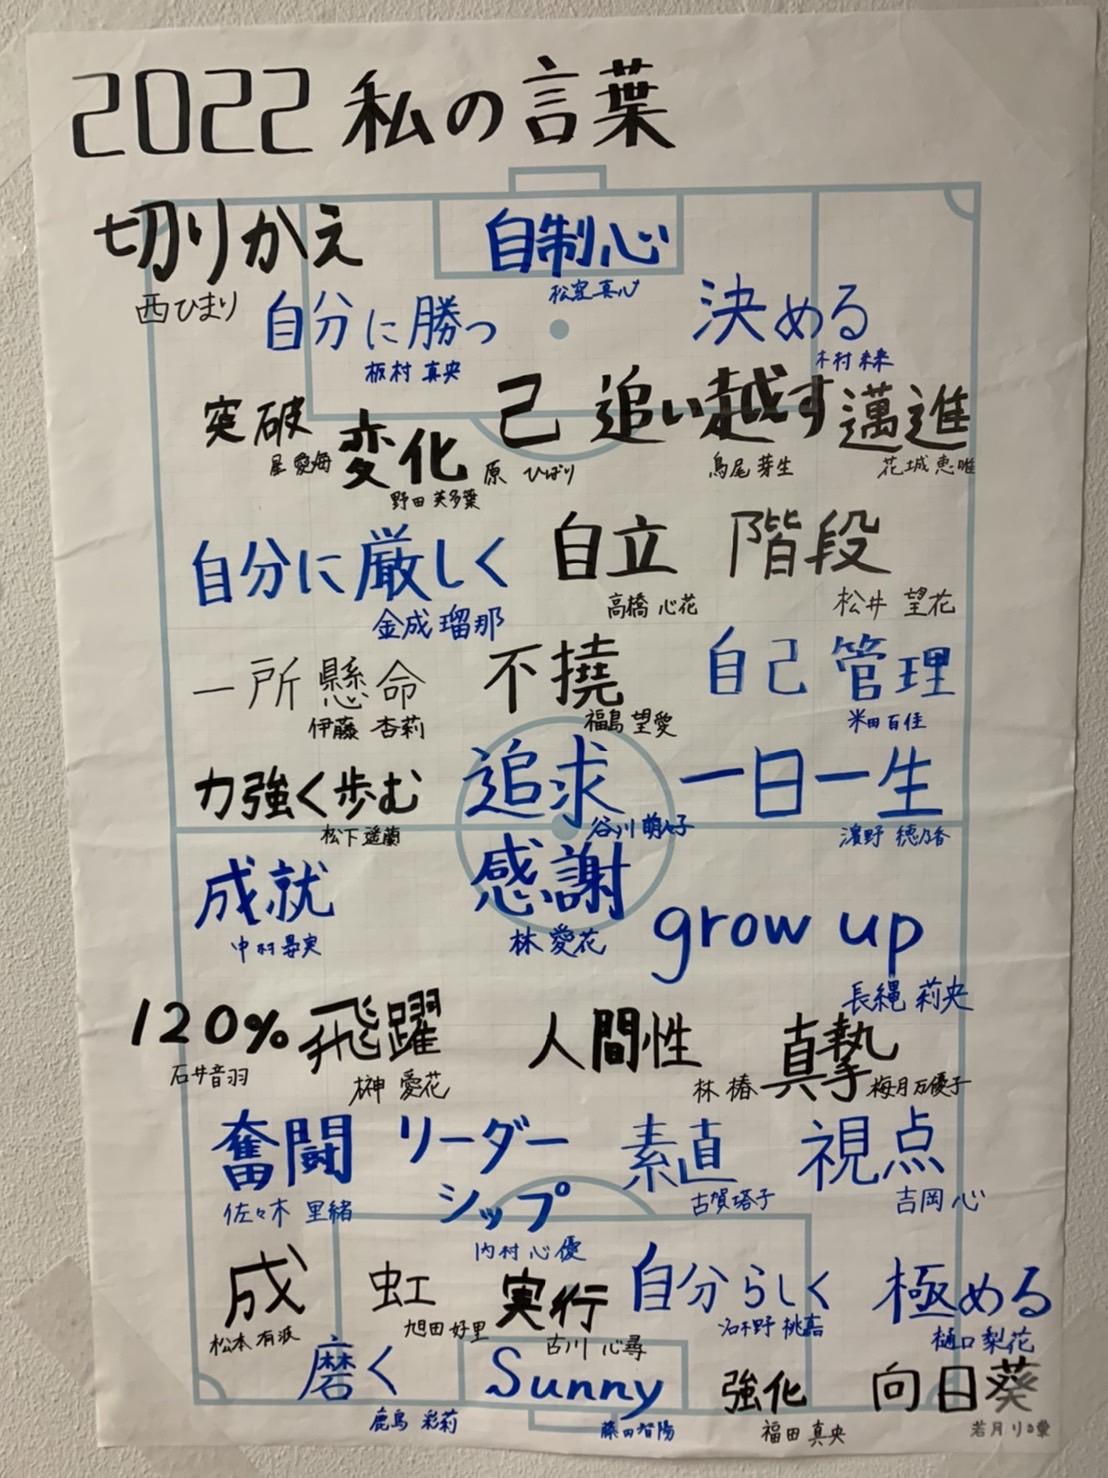 2022 私の言葉
切りかえ
西ひまり
自制心
松窪真心
自分に勝つ
板村 真央
決める
木村 未来
突破
星 愛海
変化
野田 英多葉
己
原 ひばり
追い越す
鳥尾 芽生
邁進
花城 恵唯
自分に厳しく
金成 瑠那
自立
高橋 心花
階段
松井 望花
一所懸命
伊藤 杏莉
不撓
福島 望愛
自己管理
米田 百佳
力強く歩む
松下 遥蘭
追求
谷川 萌々子
一日一生
濵野 穂乃香
成就
中村
感謝
林 愛花
grow up
長縄 莉央
120%
石井音羽
飛躍
榊 愛花
人間性
林 椿
真摯
梅月 万優子
奮闘
佐々木 里緒
リーダー
シップ
内村 心優
素直
古賀塔子
視点
吉岡 心
成
松本 有波
虹
旭田 好里
実行
古川 心尋
自分らしく
桃嘉
極める
樋口 梨花
磨く
鹿島 彩莉
Sunny
藤田智陽
強化
福田 真央
向日葵
若月